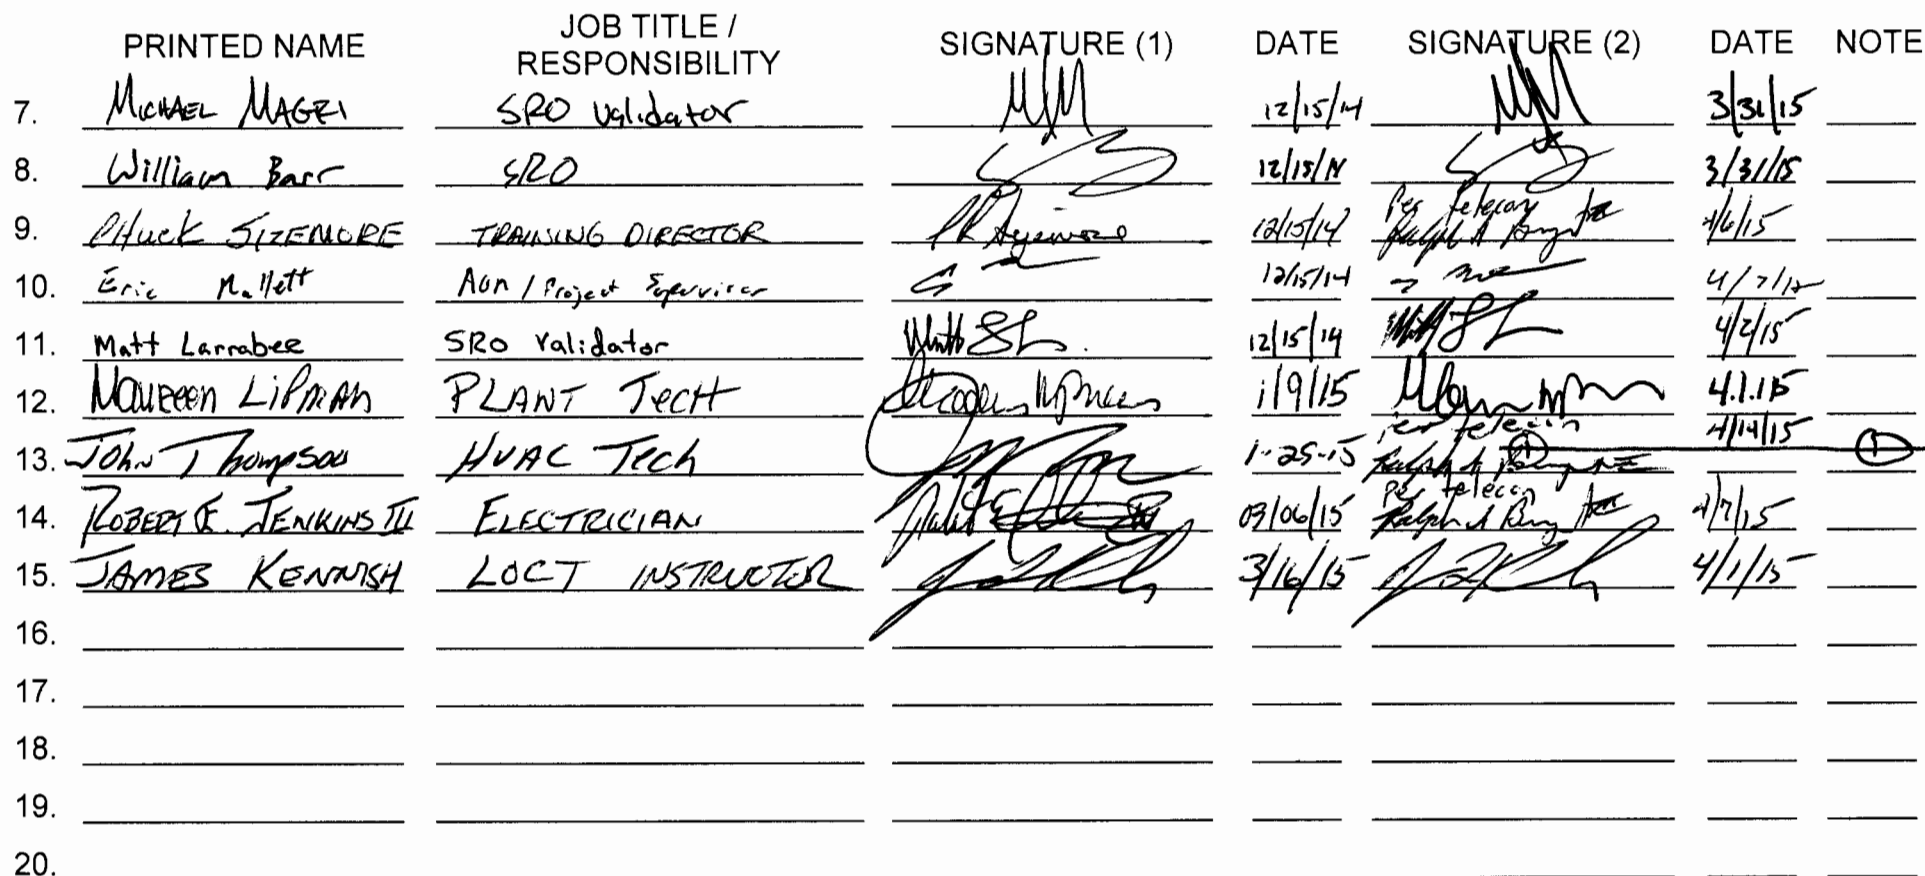 PRINTED NAME JOB TITLE / RESPONSIBILITY SIGNATURE (1) DATE SIGNATURE (2) DATE NOTE
7. MICHAEL MAGRI SRO Validator 12/15/14 3/31/15
8. William Barr SRO 12/15/14 3/31/15
9. CHuck SIZEMORE TRAINING DIRECTOR 12/15/14 Per telecon 4/6/15
10. Eric Mallett / Project Supervisor 12/15/14 4/7/15
11. Matt Larrabee SRO Validator 12/15/14 4/2/15
12. Maureen Lipman PLANT Tech 1/9/15 4.1.15
13. John Thompson HVAC Tech 1-25-15 per telecon 4/14/15 1
14. ROBERT E. JENKINS III ELECTRICIAN 03/06/15 Per telecon 4/7/15
15. JAMES KENNISH LOCT INSTRUCTOR 3/16/15 4/1/15
16.
17.
18.
19.
20.